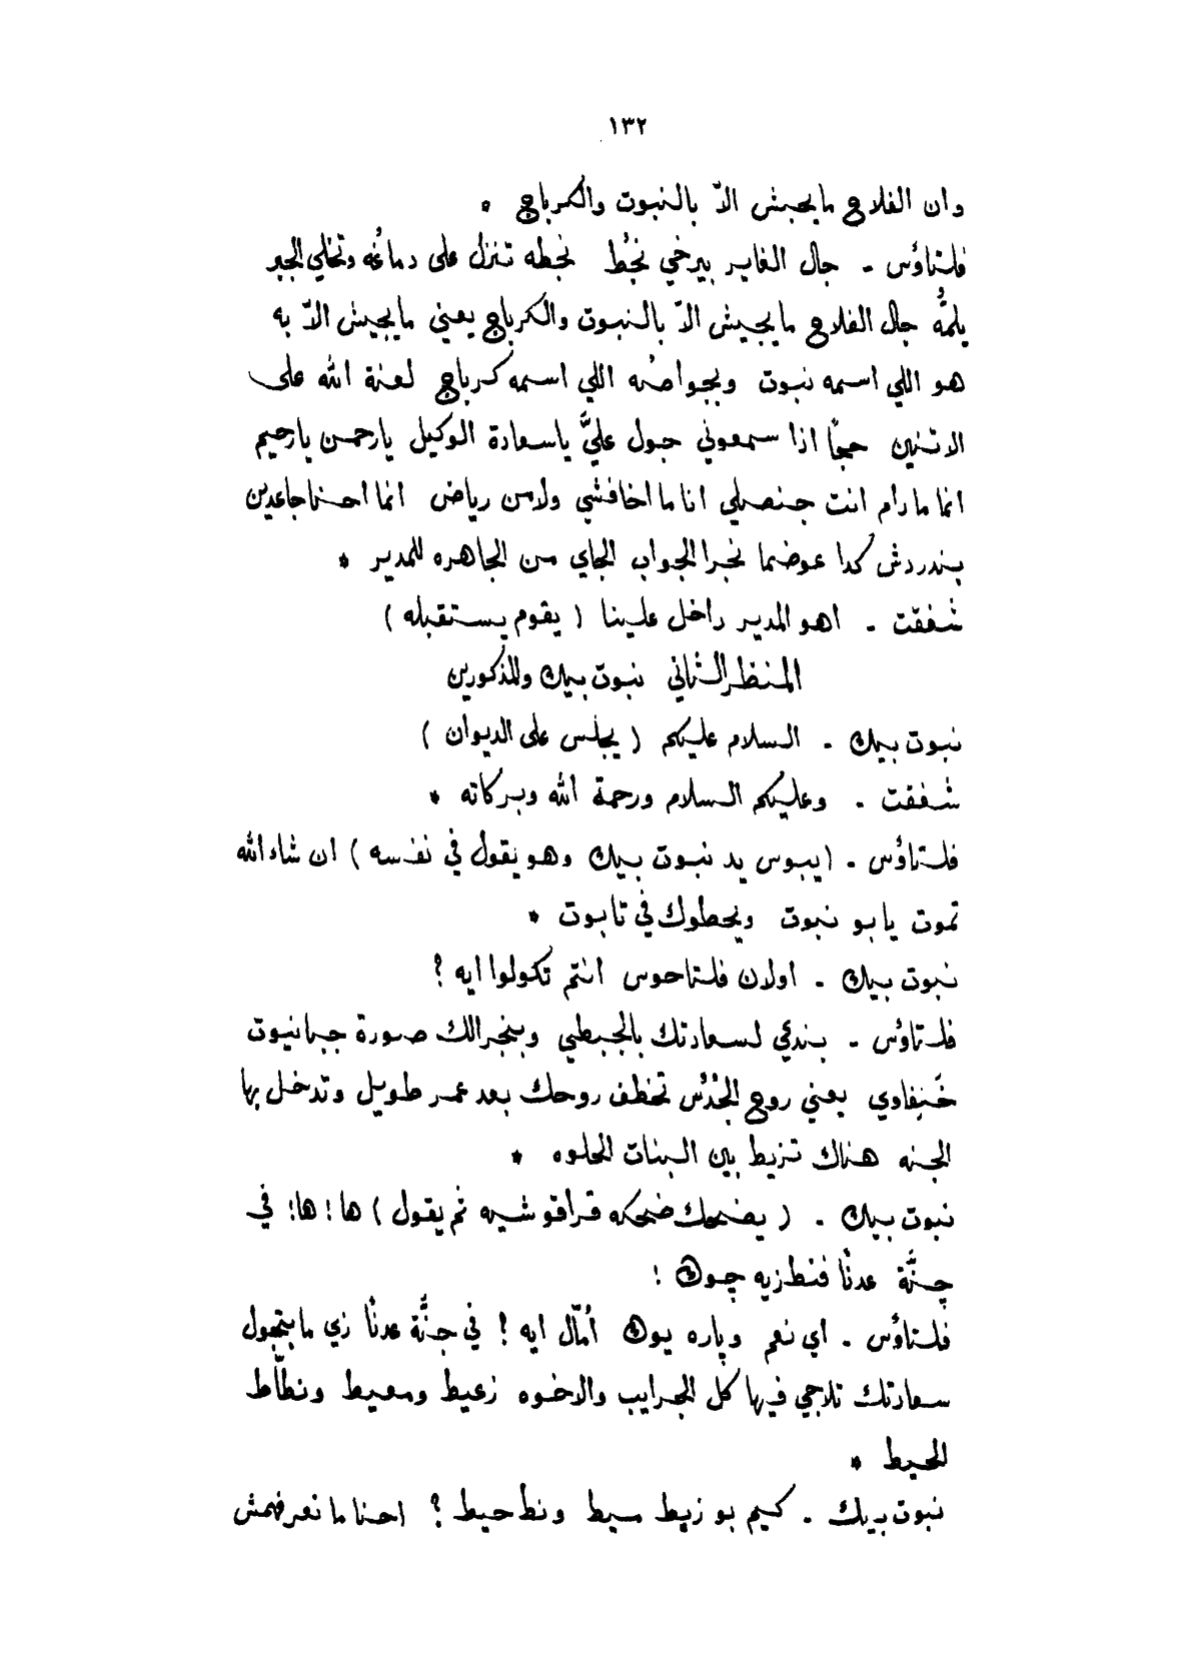 ١٣٢
وان الفلاح مايجيش الاّ بالنبوت والكرباج *
فلتاؤس - جال الغاير بيرخي نخُط نخطه تنزل على دماغُه وتخلي الجبر
يلمهُ جال الفلاح مايجيش الاّ بالنبوت والكرباج يعني مايجيش الاّ به
هو اللي اسمه نبوت وبجواضُه اللي اسمه كرباج لعنة الله على
الاتنين حجًّا اذا سمعوني حبول عليَّ ياسعادة الوكيل يارحمن يارحيم
انما مادام انت جنصلي انا ما اخافشي ولامن رياض انما احنا جاعدين
بندردش كدا عوضما نجرا الجواب الجاي من الجاهره للمدير *
شفقت - اهو المدير داخل علينا ( يقوم يستقبله )
المنظر الثاني نبوت بيك والمذكورين
نبوت بيك - السلام عليكم ( يجلس على الديوان )
شفقت - وعليكم السلام ورحمة الله وبركاته *
فلتاؤس - (يبوس يد نبوت بيك وهو يقول في نفسه ) ان شاء الله
تموت يابو نبوت ويحطوك في تابوت *
نبوت بيك - اولان فلتاحوس انتم تكولوا ايه ؟
فلتاؤس - بندعي لسعادتك بالجبطي وبنجرالك صورة جبانيوت
خَنِفاوي يعني روح الجُدُس تخطف روحك بعد عمر طويل وتدخل بها
الجنه هناك تزيط بين البنات الحلوه *
نبوت بيك - ( يضحك ضحكه قراقوشيه ثم يقول ) ها ! ها! في
جنَّة عدنًا فنطزيه چوك !
فلتاؤس - اي نعم وپاره يوك أمّال ايه ! في جنَّة عدنًا زي مابتجول
سعادتك تلاجي فيها كل الجرايب والاخوه زعيط ومعيط ونطّاط
الحيط *
نبوت بيك - كيم بو زيط سيط ونط حيط ؟ احنا ما نعرفهمش